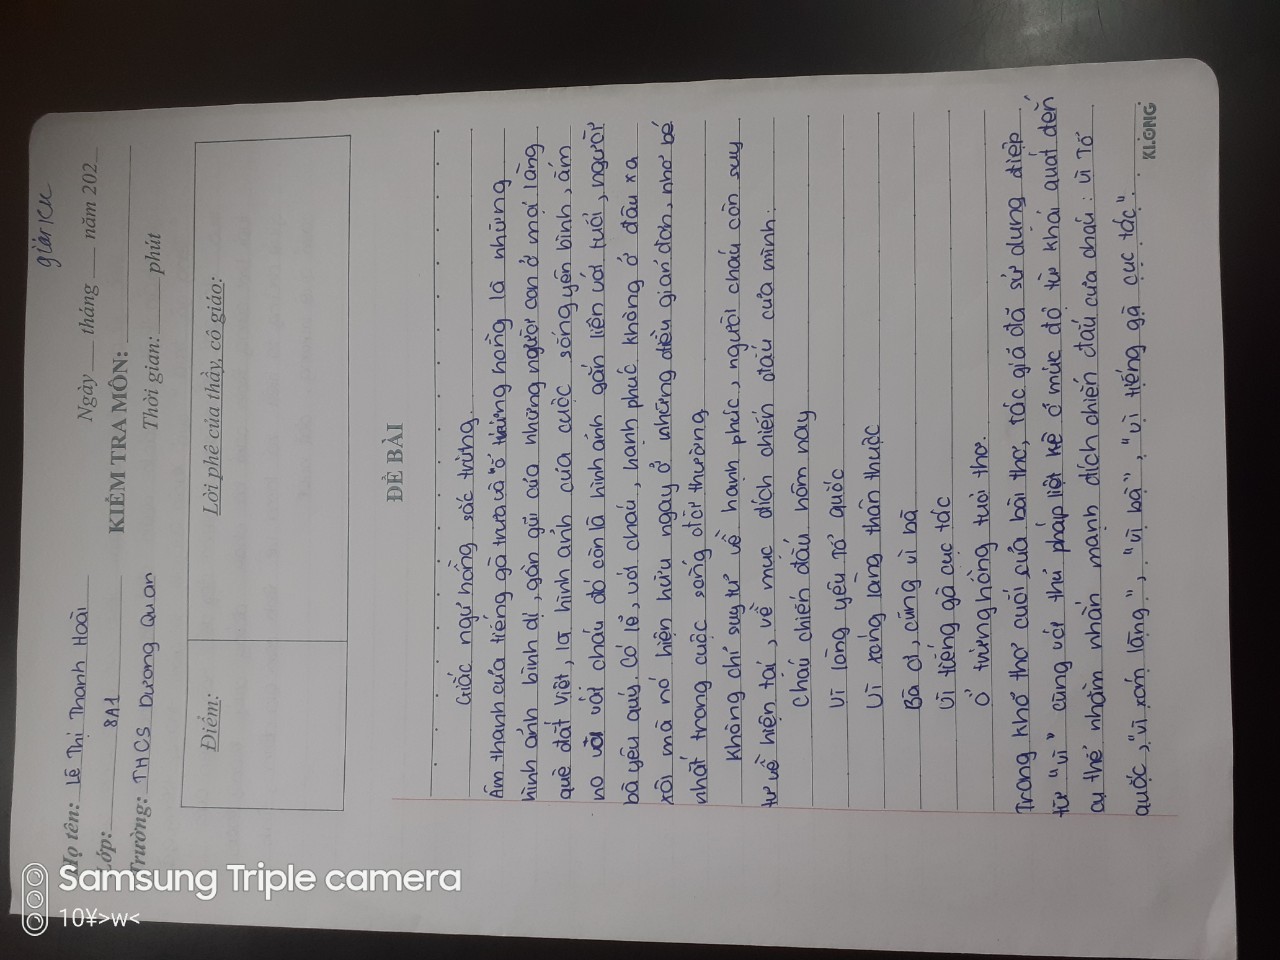 giữa kì
Họ tên: Lê Thị Thanh Hoài
Ngày___ tháng ___ năm 202
Lớp: 8A1
KIỂM TRA MÔN:
Trường: THCS Dương Quan
Thời gian: ____ phút
Điểm:
Lời phê của thầy, cô giáo:
ĐỀ BÀI
Giấc ngự hồng sắc trứng.
Âm thanh của tiếng gà trưa và "ổ trứng hồng là những
hình ảnh bình dị, gần gũi của những người con ở mọi làng
quê đất Việt, là hình ảnh của cuộc sống yên bình, ấm
no với cháu đó còn là hình ảnh gắn liền với tuổi, người
bà yêu quý. Có lẽ, với cháu, hạnh phúc không ở đâu xa
xôi mà nó hiện hữu ngay ở những điều gian đơn, nhỏ bé
nhất trong cuộc sống đời thường
Không chỉ suy tư về hạnh phúc, người cháu còn suy
tư về hiện tại, về mục đích chiến đấu của mình:
Cháu chiến đấu hôm nay
Vì lòng yêu Tổ quốc
Vì xóng làng thân thuộc
Bà ơi, cũng vì bà
Vì tiếng gà cục tác
Ổ trứng hồng tuổi thơ.
Trong khổ thơ cuối của bài thơ, tác giả đã sử dụng điệp
từ "vì" cùng với thủ pháp liệt kê ở mức độ từ khái quát đến
cụ thể nhằm nhấn mạnh đích chiến đấu của cháu: vì Tổ
quốc, "vì xóm làng", "vì bà", "vì tiếng gà cục tác".
KLONG
Samsung Triple camera
10¥>w<